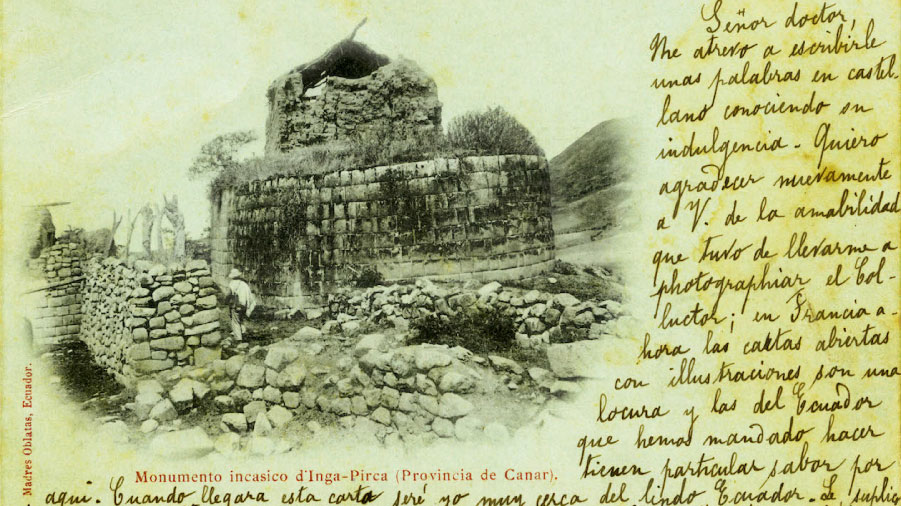 Señor doctor,
Me atrevo a escribirle
unas palabras en castel-
lano conociendo su
indulgencia. Quiero
agradecer nuevamente
a V. de la amabilidad
que tuvo de llevarme a
photographiar el Col-
luctor; en Francia a-
hora las cartas abiertas
con illustraciones son una
locura y las del Ecuador
que hemos mandado hacer
tienen particular sabor por
aqui. Cuando llegara esta carta seré yo muy cerca del lindo Ecuador. Le suplico
Monumento incasico d'Inga-Pirca (Provincia de Canar).
Madres Oblatas, Ecuador.